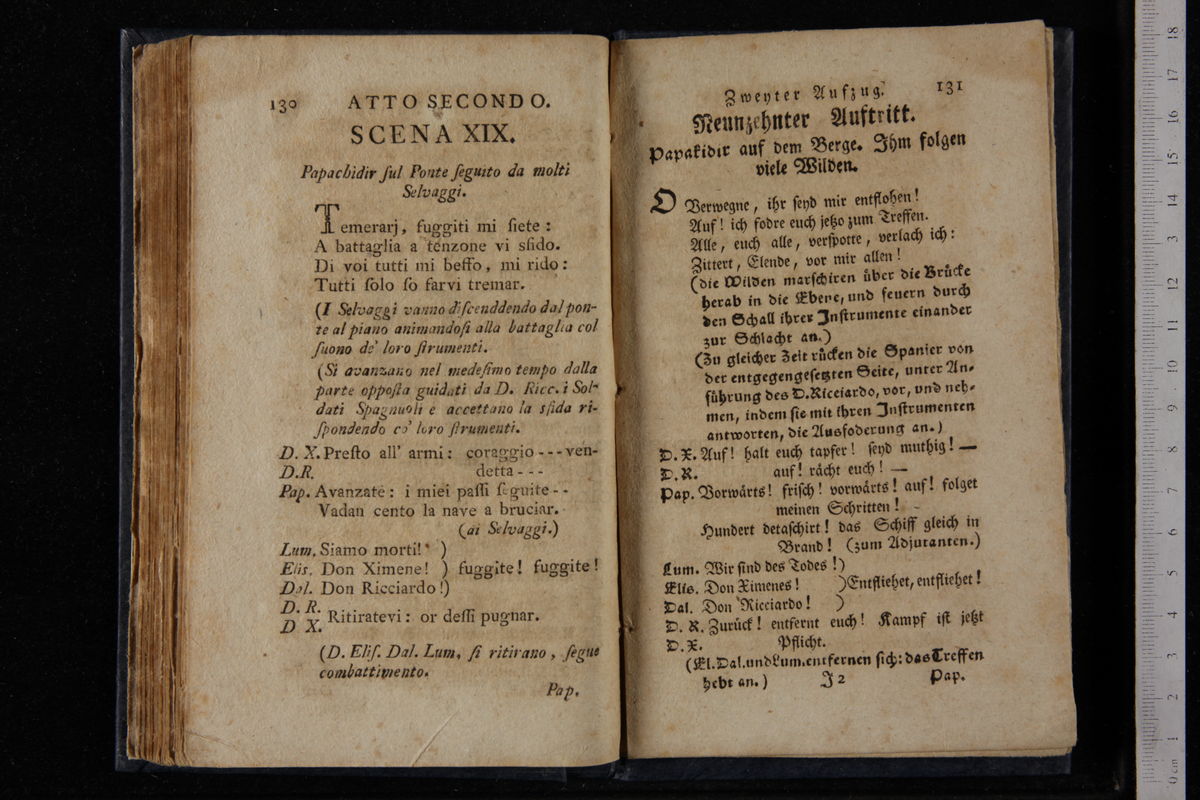 130 ATTO SECONDO.
SCENA XIX.
Papachidir ſul Ponte ſeguito da molti
Selvaggi.
Temerarj, fuggiti mi ſiete:
A battaglia a tenzone vi sfido.
Di voi tutti mi beffo, mi rido:
Tutti ſolo ſo farvi tremar.
(I Selvaggi vanno diſcenddendo dal pon-
te al piano animandoſi alla battaglia col
ſuono de' loro ſtrumenti.
(Si avanzano nel medeſimo tempo dalla
parte oppoſta guidati da D. Ricc. i Sol-
dati Spagnuoli e accettano la sfida ri-
ſpondendo co' loro ſtrumenti.
D. X. Preſto all' armi: coraggio - - - ven-
D.R. detta - - -
Pap. Avanzate: i miei paſſi ſeguite - -
Vadan cento la nave a bruciar.
(ai Selvaggi.)
Lum. Siamo morti! )
Elis. Don Ximene! ) fuggite! fuggite!
Dal. Don Ricciardo!)
D. R.
D X. Ritiratevi: or deſſi pugnar.
(D. Eliſ. Dal. Lum. ſi ritirano, ſegue
combattimento.
Pap.
Zweyter Aufzug. 131
Neunzehnter Auftritt.
Papakidir auf dem Berge. Ihm folgen
viele Wilden.
O Verwegne, ihr ſeyd mir entflohen!
Auf! ich fodre euch jetzo zum Treffen.
Alle, euch alle, verſpotte, verlach ich:
Zittert, Elende, vor mir allen!
(die Wilden marſchiren über die Brücke
herab in die Ebene, und feuern durch
den Schall ihrer Inſtrumente einander
zur Schlacht an.)
(Zu gleicher Zeit rücken die Spanier von
der entgegengeſetzten Seite, unter An-
führung des D. Ricciardo, vor, und neh-
men, indem ſie mit ihren Inſtrumenten
antworten, die Ausfoderung an.)
D. X. Auf! halt euch tapfer! ſeyd muthig! —
D. R. auf! rächt euch! —
Pap. Vorwärts! friſch! vorwärts! auf! folget
meinen Schritten!
Hundert detaſchirt! das Schiff gleich in
Brand! (zum Adjutanten.)
Lum. Wir ſind des Todes!)
Elis. Don Ximenes! )Entfliehet, entfliehet!
Dal. Don Ricciardo! )
D. R. Zurück! entfernt euch! Kampf iſt jetzt
D. X. Pflicht.
(El. Dal. und Lum. entfernen ſich: das Treffen
hebt an.) J 2 Pap.
0 cm 1 2 3 4 5 6 7 8 9 10 11 12 13 14 15 16 17 18